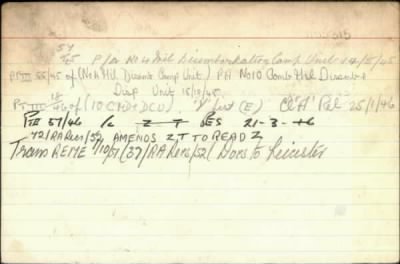 57/45 P/A No 4 Mil Disembarkation Camp Unit 14/5/45
Pt III 55/45 of (No 4 Mil Disemb Camp Unit) PA No 10 Comb Mil Disemb &
Disp Unit 15/9/45
Pt III 18/46 of (10 CMD & DCU) "Y" list (E) Cl 'A' Rel 25/1/46
Pt III 57/46 RES 21-3-46
72/RA Rens/52 AMENDS Z T TO READ Z
Trans REME 1/10/51 (37/RA Rens/52) Docs to Leicester